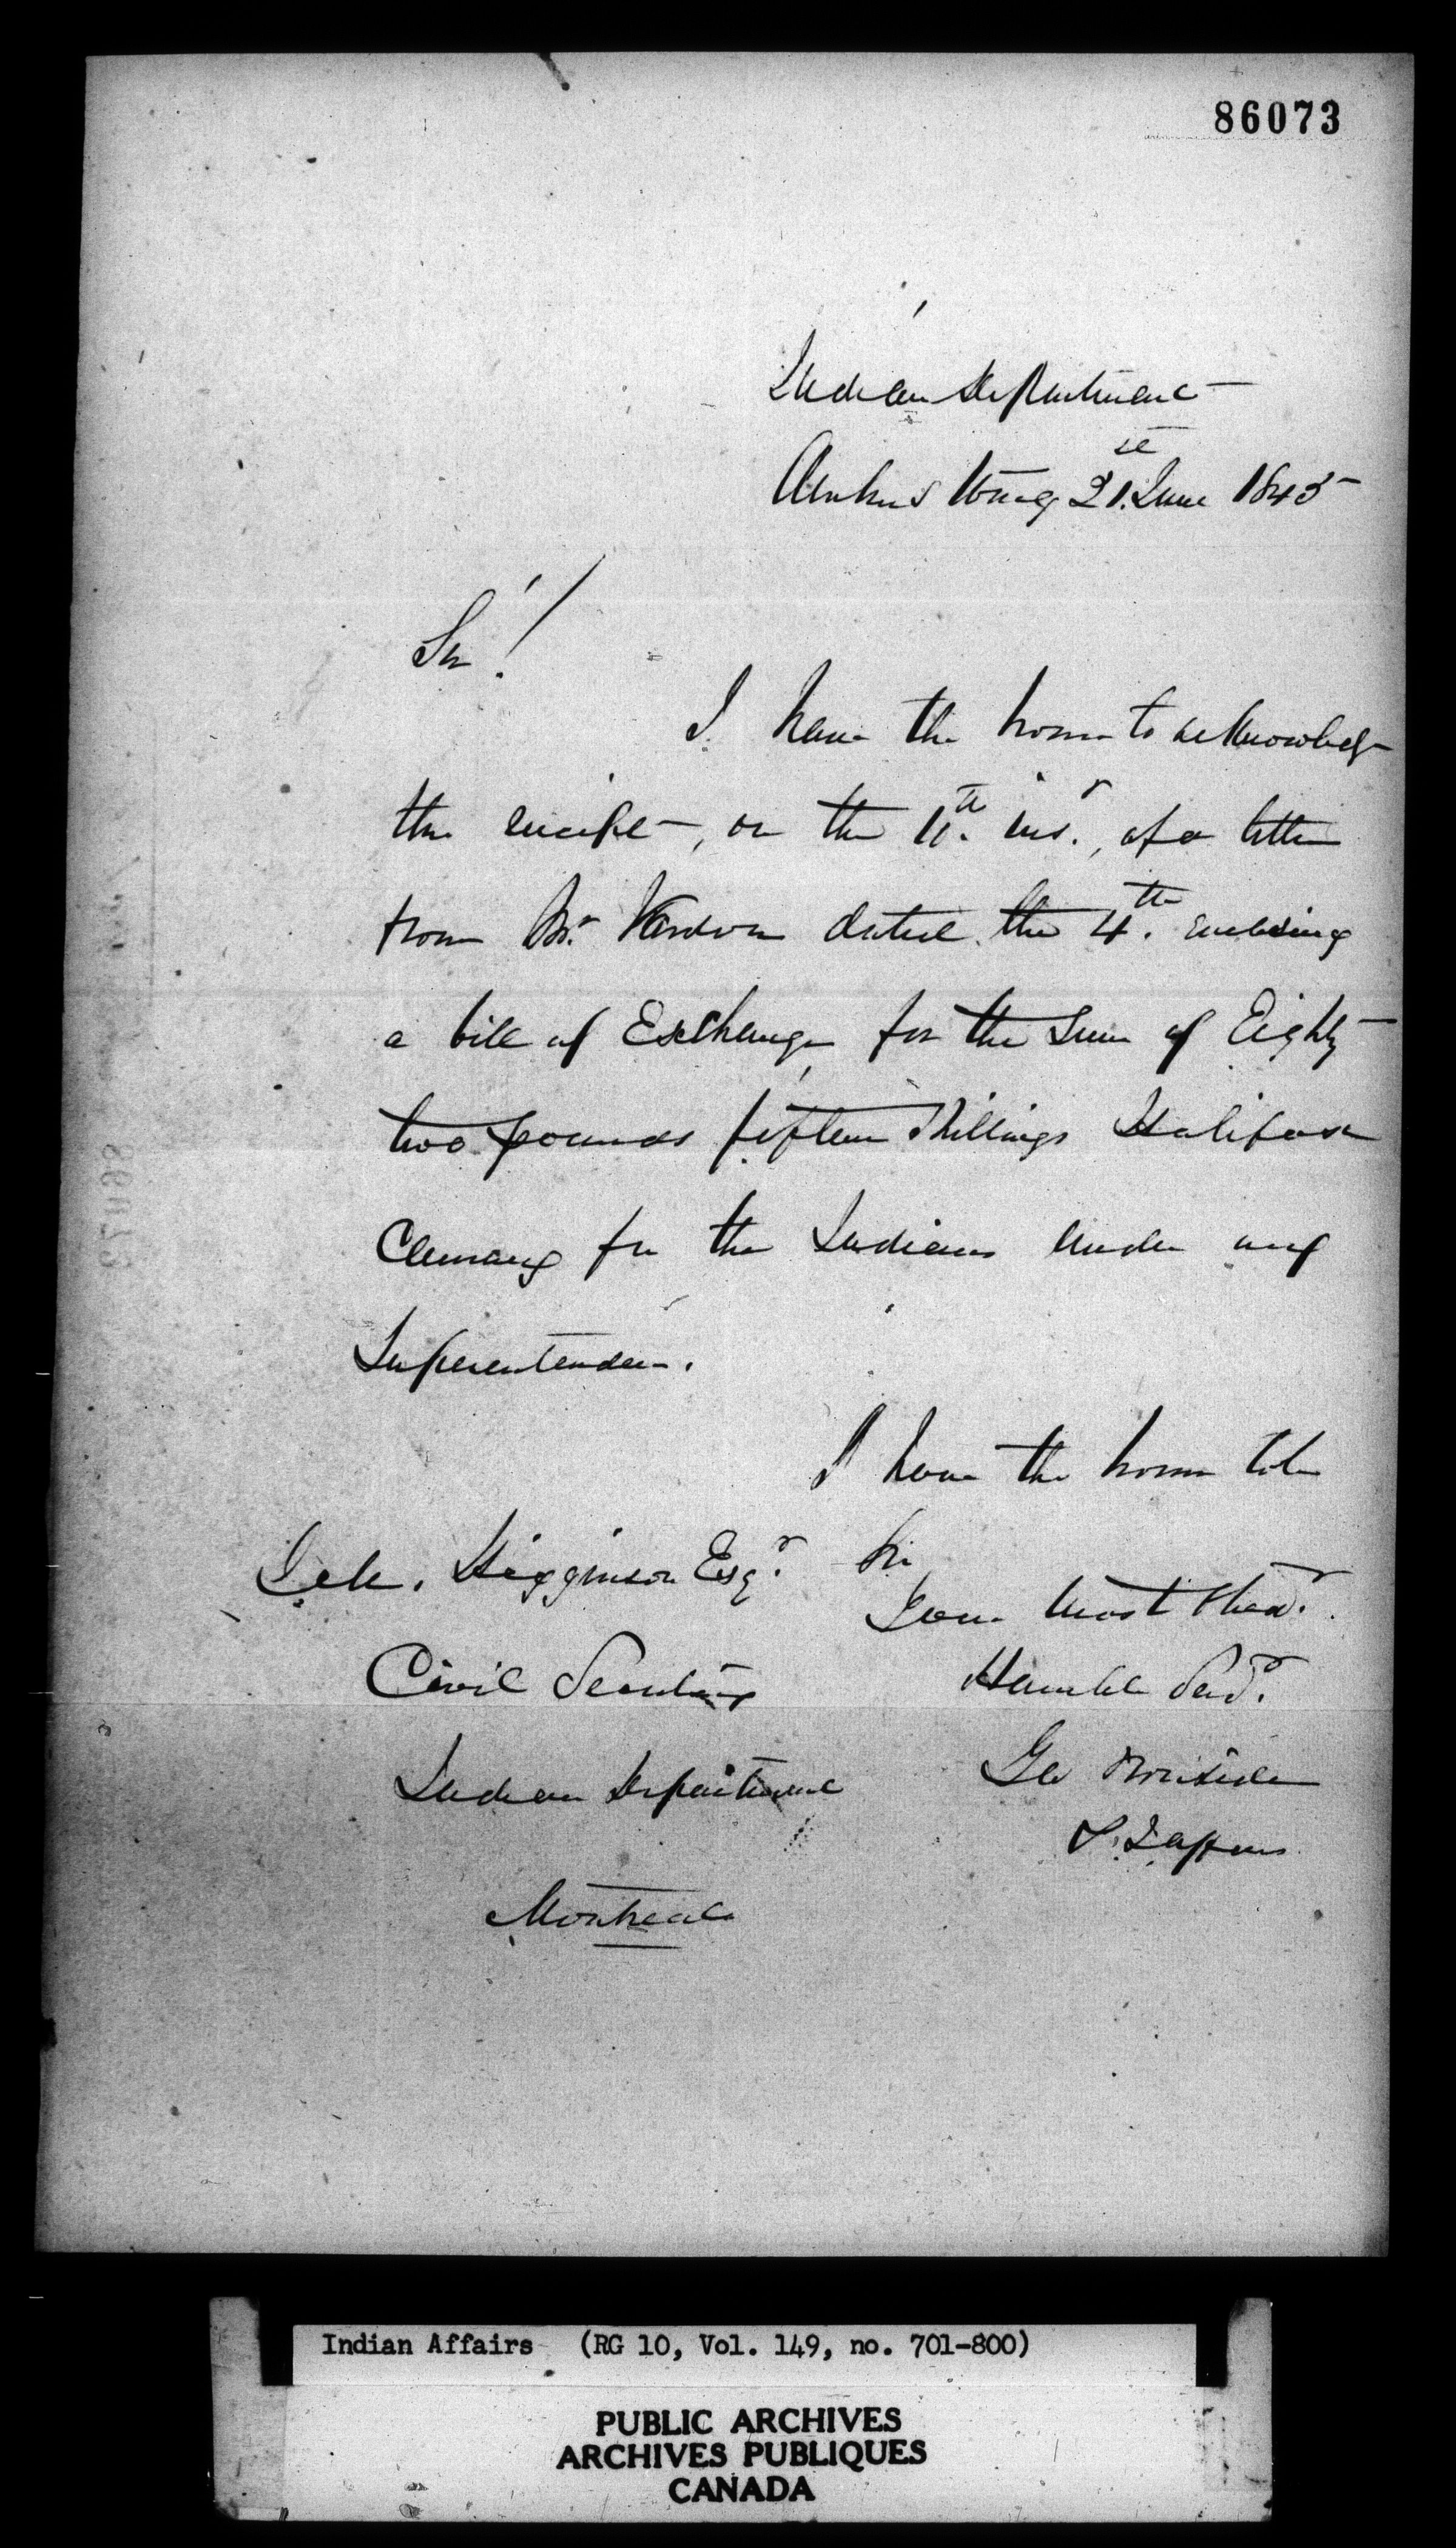 86073
Indian Department
Amherstburg 21.st June 1845
Sir!
I have the honor to acknowledge
the receipt, on the 11th. inst., of a letter
from Mr. Vardon dated the 4th. enclosing
a bill of Exchange for the Sum of Eighty
two pounds fifteen Shillings Halifax
Currency for the Indians under my
Superintendence.
I have the honor to be
Higginson Esqr. Sir
Your most Obedt.
Civil Secretary Humble Servt.
Geo Ironside
Indian Department
Montreal
Indian Affairs (RG 10, Vol. 149, no. 701-800)
PUBLIC ARCHIVES
ARCHIVES PUBLIQUES
CANADA